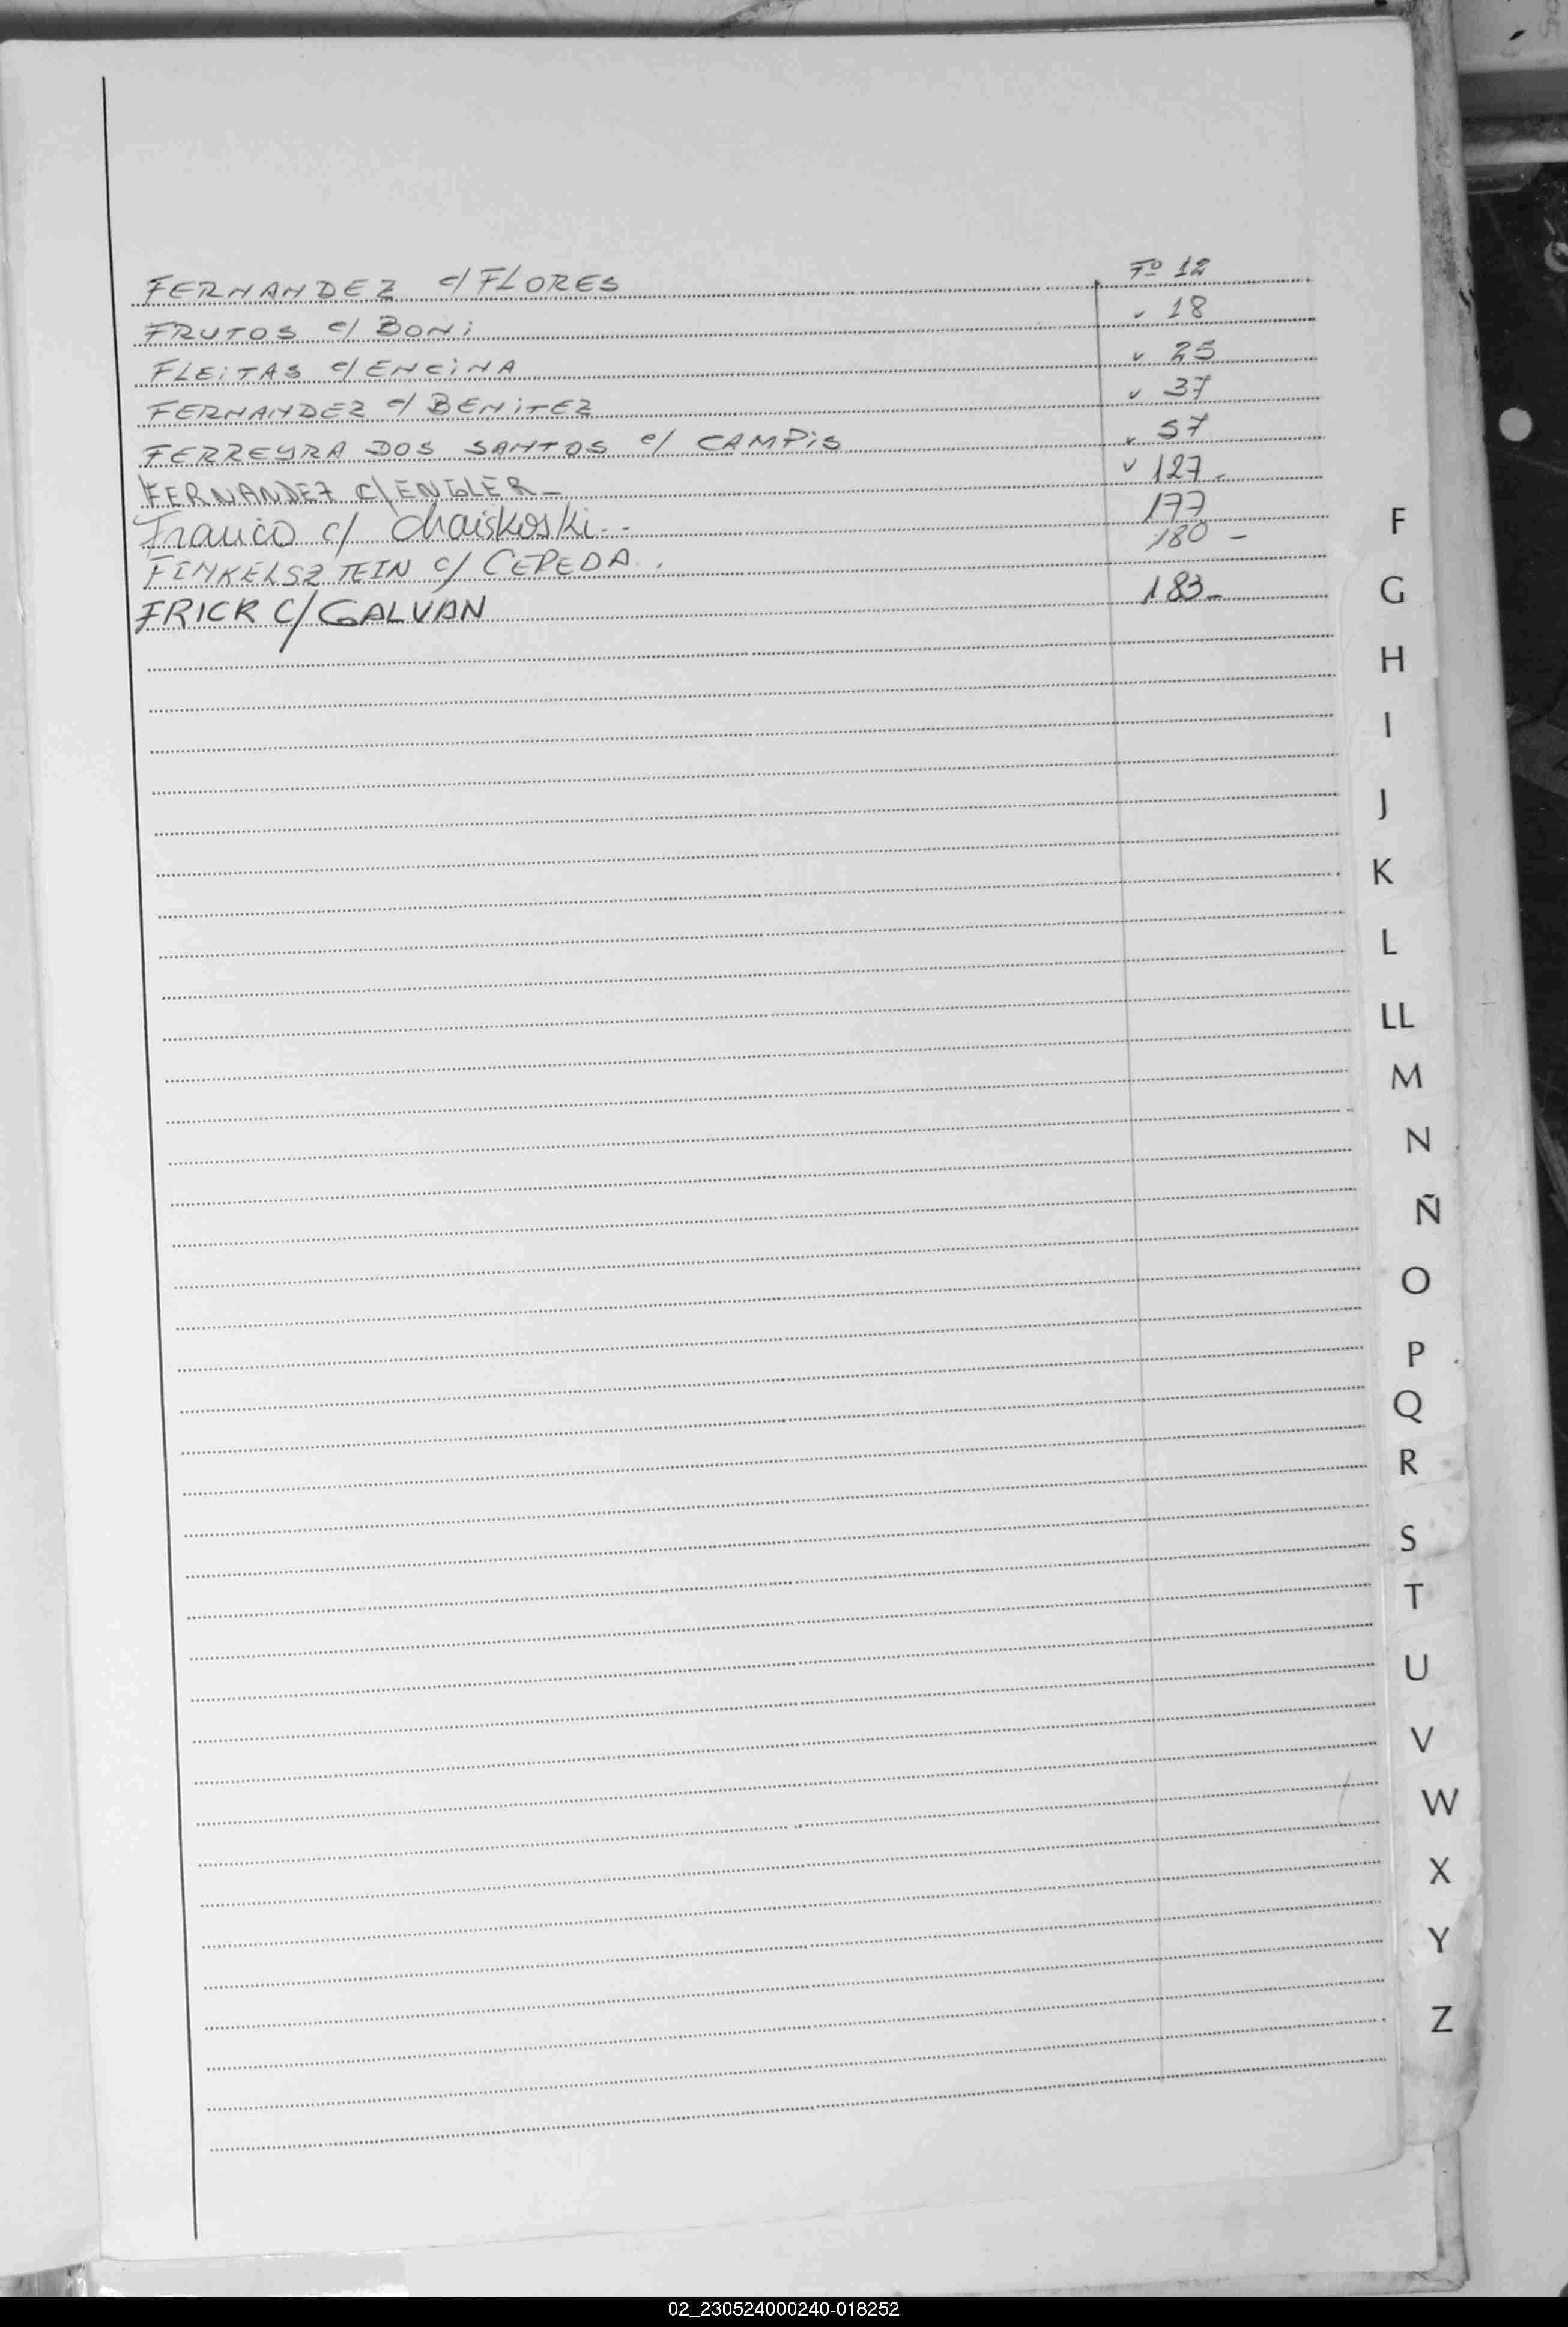 FERNANDEZ c/ FLORES Fº 12
FRUTOS c/ BONI v 18
FLEITAS c/ ENCINA v 25
FERNANDEZ c/ BENITEZ v 37
FERREYRA DOS SANTOS c/ CAMPIS v 57
FERNANDEZ C/ ENGLER - v 127-
Franco c/ Chaiskoski-- 177
FINKELSZTEIN c/ CEPEDA. 180 -
FRICK C/ GALVAN 183-
F
G
H
I
J
K
L
LL
M
N
Ñ
O
P
Q
R
S
T
U
V
W
X
Y
Z
02_230524000240-018252